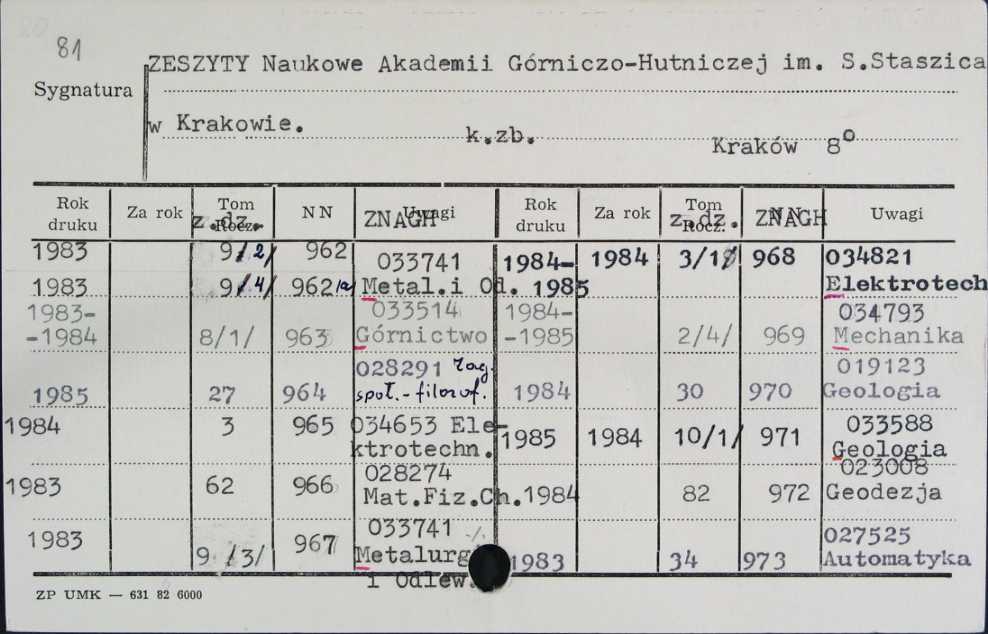 81
ZESZYTY Naukowe Akademii Górniczo-Hutniczej im. S.Staszica
Sygnatura
w Krakowie.
k.zb.
Kraków 8°
Rok druku Za rok Tom Rocz. z.dz. NN ZNAGH Uwagi Rok druku Za rok Tom Rocz. z.dz. NN ZNAGH Uwagi
1983 9/2/ 962 033741 1984- 1984 3/1/ 968 034821
1983 9/4/ 962/a Metal.i Od. 1985 Elektrotech
1983- 033514 1984- 034793
-1984 8/1/ 963 Górnictwo -1985 2/4/ 969 Mechanika
028291 zag. 019123
1985 27 964 społ.-filozof. 1984 30 970 Geologia
1984 3 965 034653 Ele- 1985 1984 10/1/ 971 033588
ktrotechn. Geologia
1983 62 966 028274 023008
Mat.Fiz.Ch. 1984 82 972 Geodezja
1983 967 033741 -/. 027525
9 /3/ Metalurg 1983 34 973 Automatyka
i Odlew.
ZP UMK — 631 82 6000